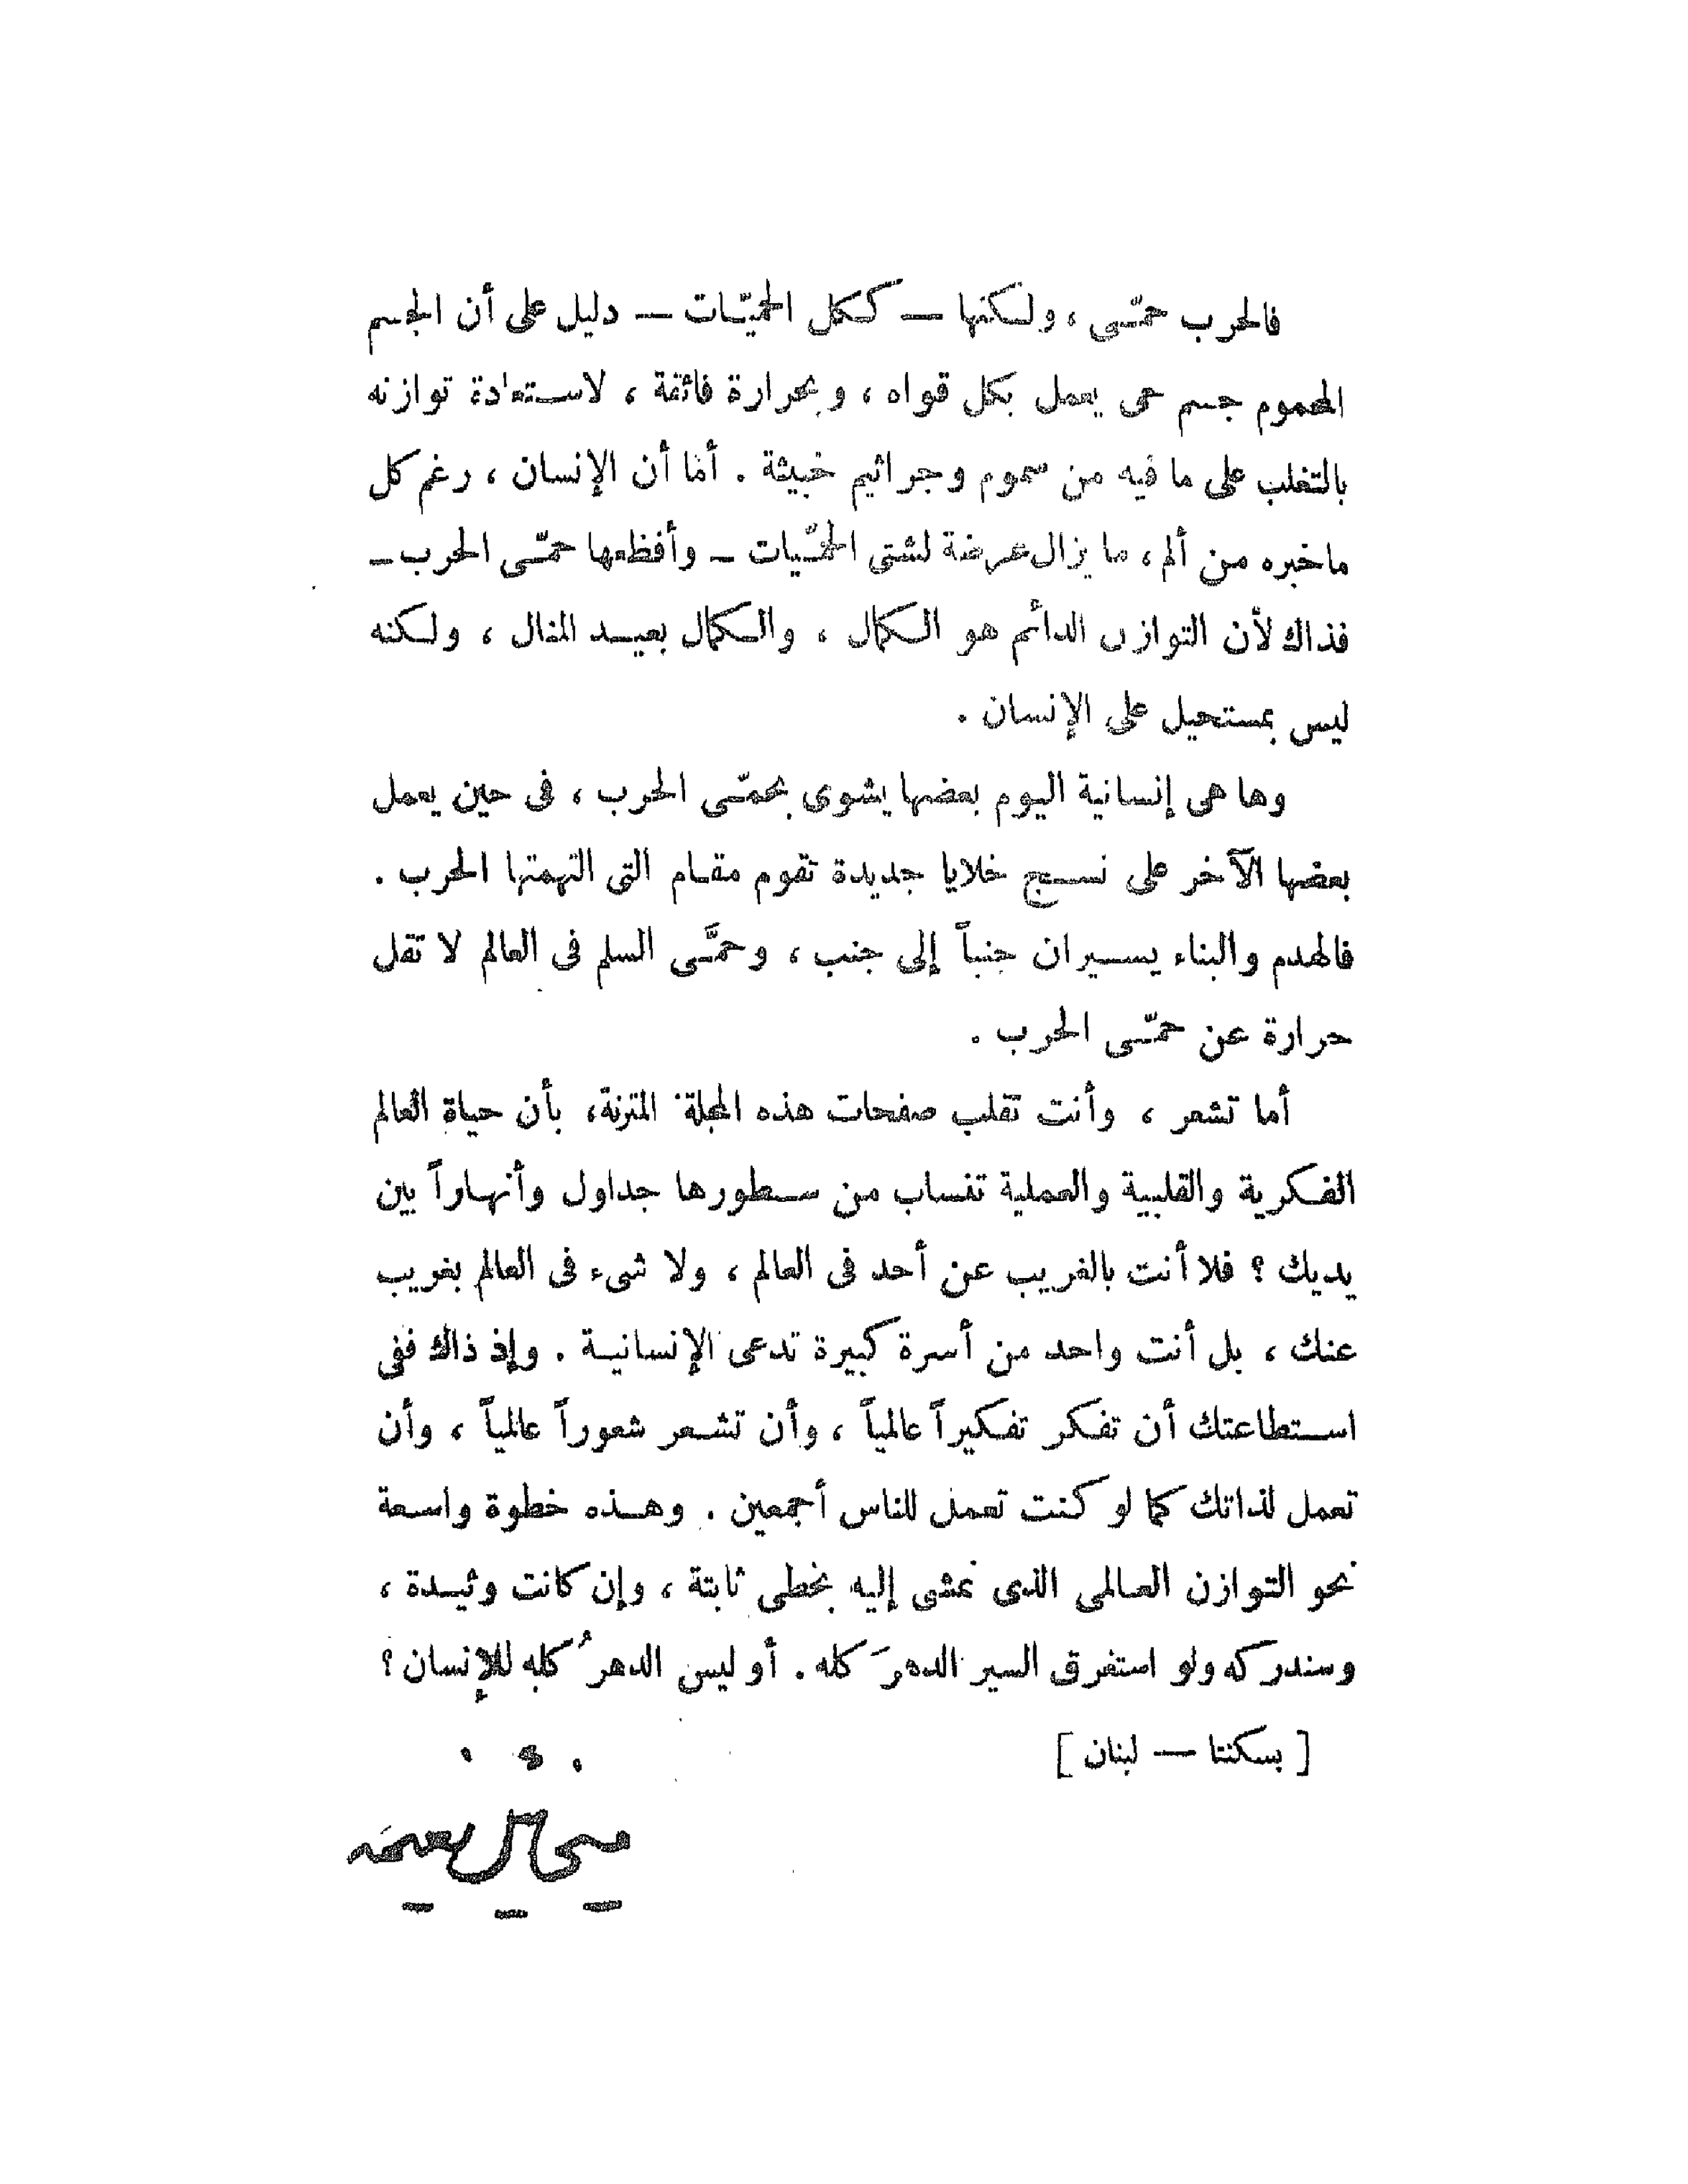 فالحرب حمّى ، ولكنها — ككل الحميّات — دليل على أن الجسم
المحموم جسم حى يعمل بكل قواه ، وبحرارة فائقة ، لاستعادة توازنه
بالتغلب على ما فيه من سموم وجراثيم خبيثة . أما أن الإنسان ، رغم كل
ماخبره من ألم ، ما يزال عرضة لشتى الحمّيات – وأفظعها حمّى الحرب –
فذاك لأن التوازن الدائم هو الكمال . والكمال بعيد المنال ، ولكنه
ليس بمستحيل على الإنسان .
وها هى إنسانية اليوم بعضها يشوى بحمّى الحرب ، فى حين يعمل
بعضها الآخر على نسج خلايا جديدة تقوم مقام التى التهمتها الحرب .
فالهدم والبناء يسيران جنباً إلى جنب ، وحمَّى السلم فى العالم لا تقل
حرارة عن حمّى الحرب .
أما تشعر ، وأنت تقلب صفحات هذه المجلة المتزنة ، بأن حياة العالم
الفكرية والقلبية والعملية تنساب من سطورها جداول وأنهاراً بين
يديك ؟ فلا أنت بالغريب عن أحد فى العالم ، ولا شىء فى العالم بغريب
عنك ، بل أنت واحد من أسرة كبيرة تدعى الإنسانية . وإذ ذاك ففى
استطاعتك أن تفكر تفكيراً عالمياً ، وأن تشعر شعوراً عالمياً ، وأن
تعمل لذاتك كما لو كنت تعمل للناس أجمعين . وهذه خطوة واسعة
نحو التوازن العالمى الذى نمشى إليه بخطى ثابتة ، وإن كانت وئيدة ،
وسندركه ولو استغرق السير الدهرَ كله . أو ليس الدهرُ كله للإنسان ؟
[ بسكنتا — لبنان ]
ميخائيل نعيمه